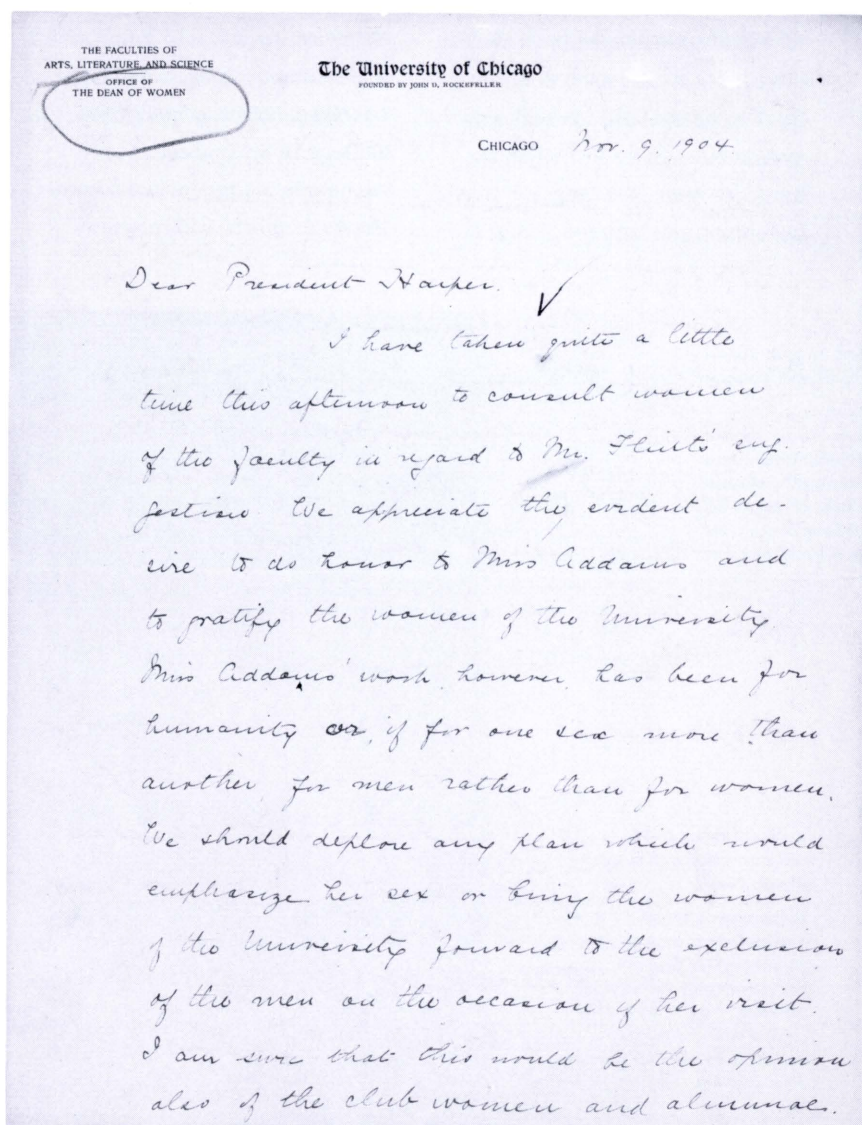 THE FACULTIES OF
ARTS, LITERATURE, AND SCIENCE
OFFICE OF
THE DEAN OF WOMEN
The University of Chicago
FOUNDED BY JOHN D. ROCKEFELLER
CHICAGO Nov. 9, 1904
Dear President Harper.
I have taken quite a little
time this afternoon to consult women
of the faculty in regard to Mr. Flint's sug-
gestion We appreciate the evident de-
sire to do honor to Miss Addams and
to gratify the women of the University
Miss Addams' work, however, has been for
humanity or, if for one sex more than
another for men rather than for women.
We should deplore any plan which would
emphasize her sex or bring the women
of the University forward to the exclusion
of the men on the occasion of her visit.
I am sure that this would be the opinion
also of the club women and alumnae.